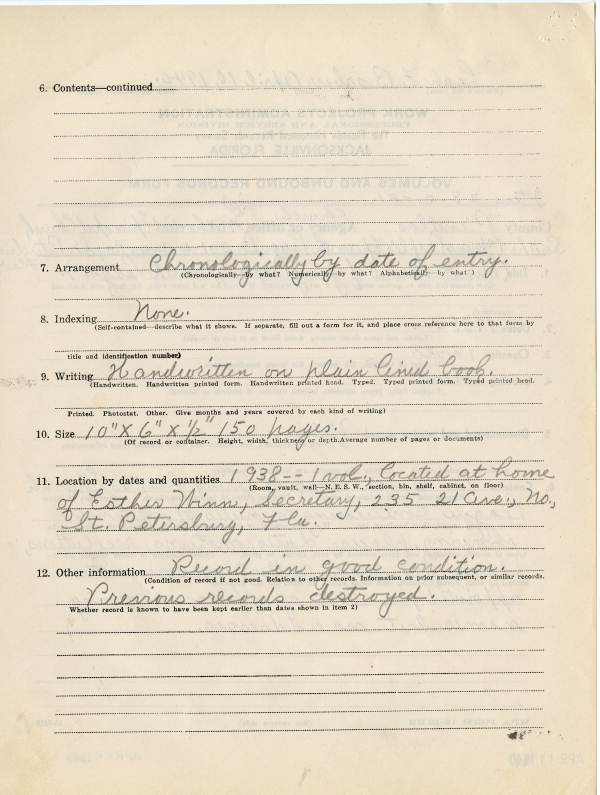 6. Contents—continued
7. Arrangement Chronologically by date of entry.
(Chronologically—by what? Numerically—by what? Alphabetically—by what?)
8. Indexing None.
(Self-contained—describe what it shows. If separate, fill out a form for it, and place cross reference here to that form by
title and identification number)
9. Writing Handwritten on plain lined book.
(Handwritten. Handwritten printed form. Handwritten printed head. Typed. Typed printed form. Typed printed head.
Printed. Photostat. Other. Give months and years covered by each kind of writing)
10. Size 10" X 6" X 1/2" 150 pages.
(Of record or container. Height, width, thickness or depth. Average number of pages or documents)
11. Location by dates and quantities 1938 -- 1 vol., located at home
(Room, vault, wall—N. E. S. W., section, bin, shelf, cabinet, on floor)
of Esther Winn, Secretary, 235 21 Ave., No.,
St. Petersburg, Fla.
12. Other information Record in good condition.
(Condition of record if not good. Relation to other records. Information on prior subsequent, or similar records.
Previous records destroyed.
Whether record is known to have been kept earlier than dates shown in item 2)
WORK PROJECTS ADMINISTRATION
JACKSONVILLE FLORIDA
VOLUMES AND UNBOUND RECORDS FORM